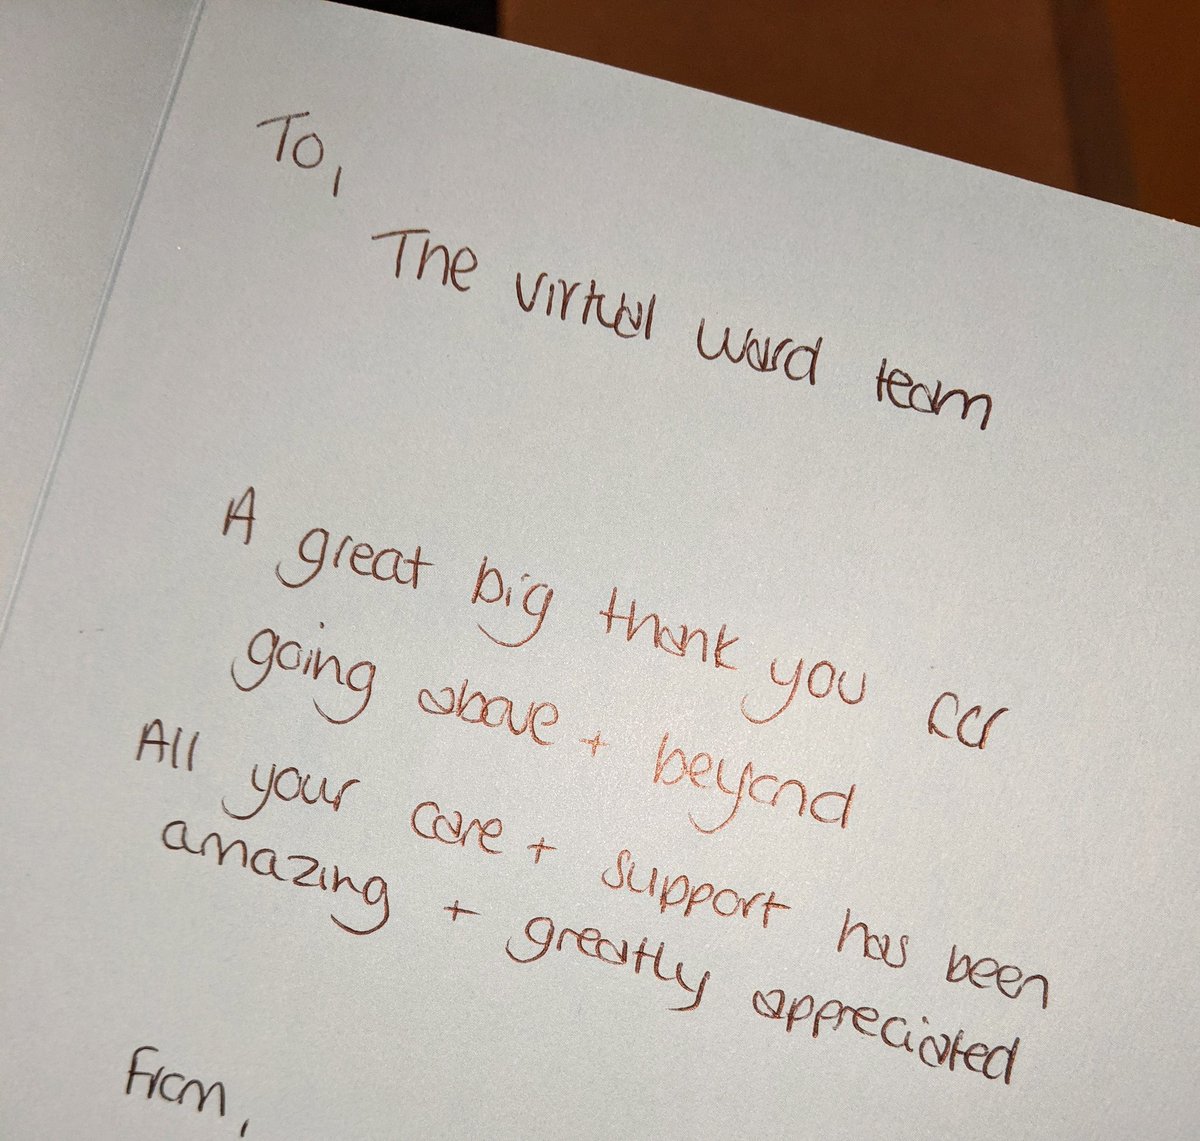 To,
The virtual ward team
A great big thank you for
going above + beyond
All your care + support has been
amazing + greatly appreciated
From,